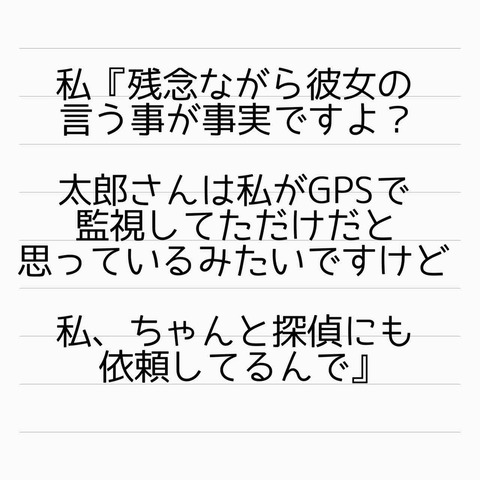 私『残念ながら彼女の
言う事が事実ですよ？
太郎さんは私がGPSで
監視してただけだと
思っているみたいですけど
私、ちゃんと探偵にも
依頼してるんで』